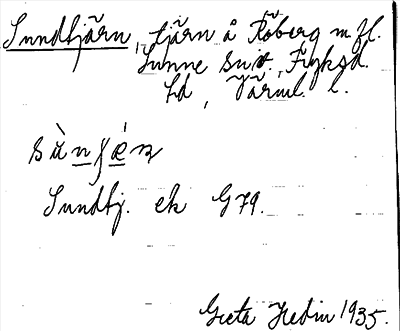 Sundtjärn, tjärn å Röberg m fl.
Sunne sn, Fryksd.
hd, Värml. l.
Sundtj. ek G 79.
Greta Hedin 1935.